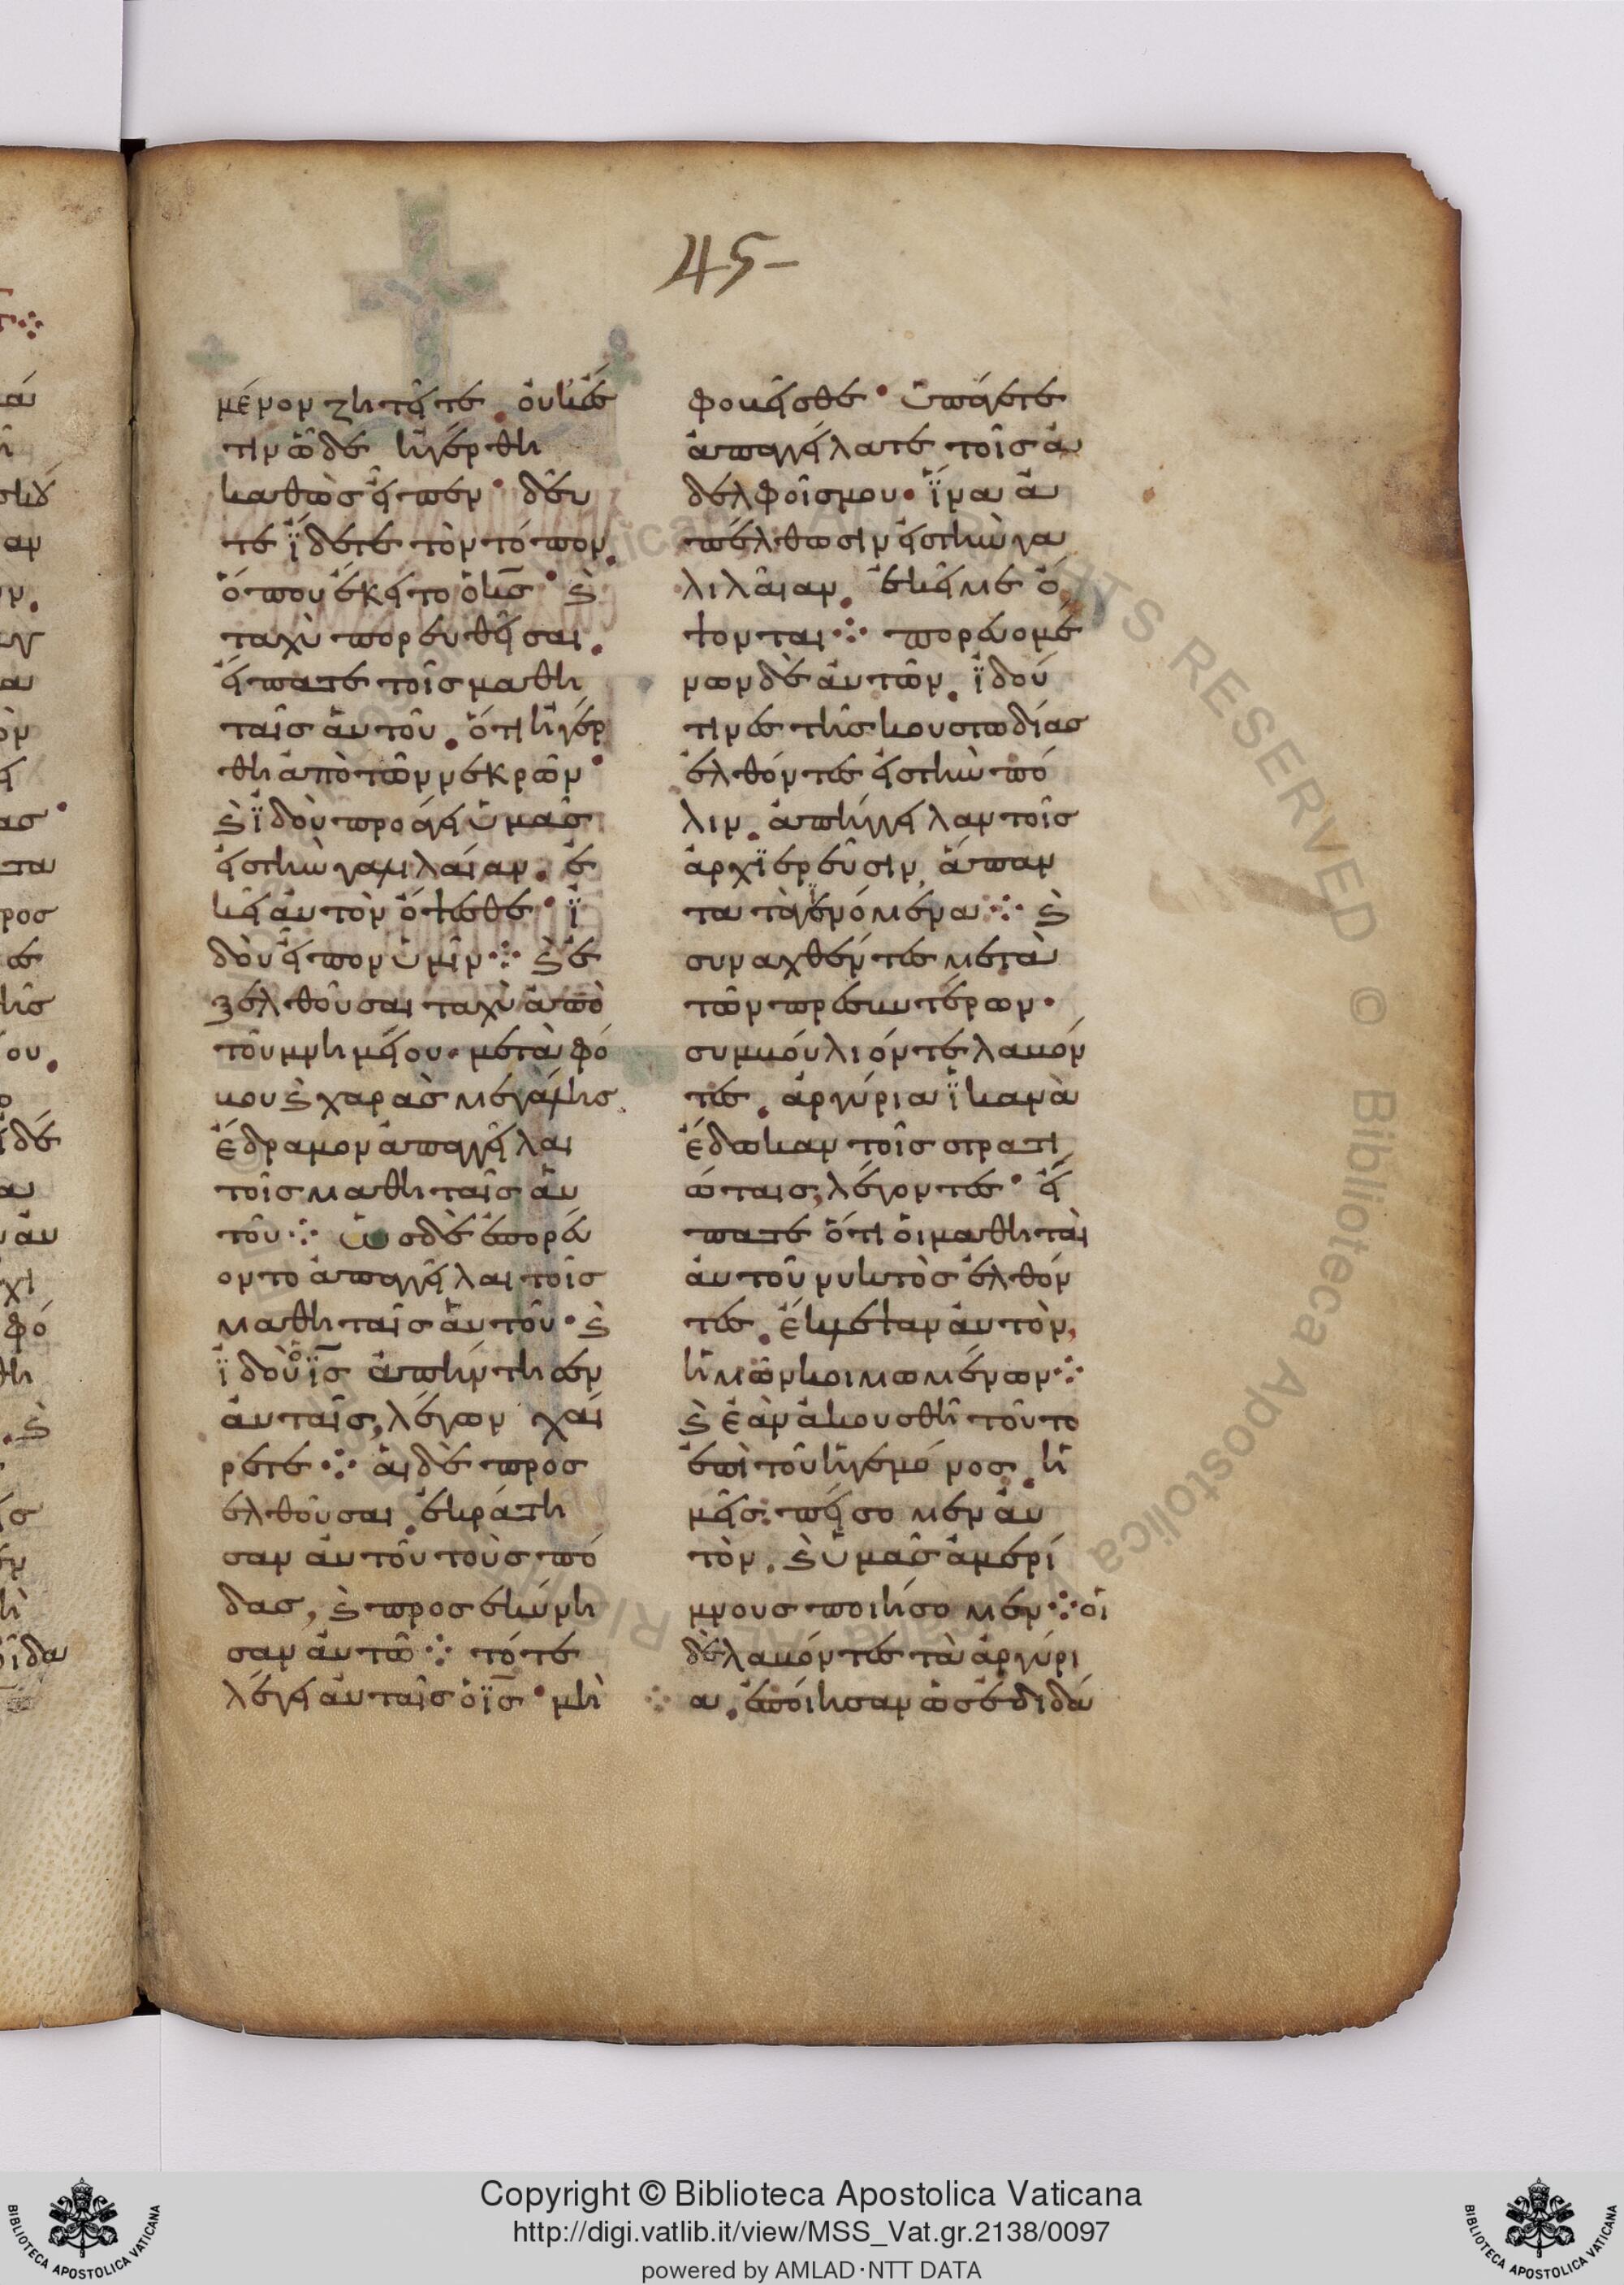 45-
μένον ζητεῖτε. οὐκ ἔσ
τιν ὧδε ἠγέρθη
καθὼς εἶπεν· δεῦ
τε ἴδετε τὸν τόπον.
ὅπου ἔκειτο ὁ κ̅ς̅· ϗ̀
ταχὺ πορευθεῖσαι.
εἴπατε τοῖς μαθη
ταῖς αὐτοῦ. ὅτι ἠγέρ
θη ἀπὸ τῶν νεκρῶν·
ϗ̀ ἰ̈δοὺ προάγει ὑμᾶς
εἰς τὴν γαλιλαίαν. ἐ
κεῖ αὐτὸν ὄψεσθε· ἰ̈
δοὺ εἶπον ὑμῖν⁘ ϗ̀ ἐ
ξελθοῦσαι ταχὺ ἀπὸ
τοῦ μνημείου. μετὰ φό
βου ϗ̀ χαρᾶς μεγάλης.
ἔδραμον ἀπαγγεῖλαι
τοῖς μαθηταῖς αὐ
τοῦ⁘ ὡς δὲ ἐπορεύ
οντο ἀπαγγεῖλαι τοῖς
μαθηταῖς αὐτοῦ· ϗ̀
ἰ̈δοὺ ὁ ι̅ς̅ ἀπήντησεν
αὐταῖς, λέγων χαί
ρετε⁘ αἱ δὲ προσ
ελθοῦσαι. ἐκράτη
σαν αὐτοῦ τοὺς πό
δας, ϗ̀ προσεκύνη
σαν αὐτῶ⁘ τότε
λέγει αὐταῖς ὁ ι̅ς̅· μὴ
φοβεῖσθε· ὑπάγετε
ἀπαγγείλατε τοῖς ἀ
δελφοῖς μου· ἵ̈να ἀ
πέλθωσιν εἰς τὴν γα
λιλαίαν. ἐκεῖ με ὄ
ψονται⁘ πορευομέ
νων δὲ αὐτῶν. ἰ̈δού
τινες τῆς κουστωδίας
ἐλθόντες εἰς τὴν πό
λιν. ἀπήγγειλαν τοῖς
ἀρχιερεῦσιν, ἅπαν
τα τὰ γενόμενα⁘ ϗ̀
συναχθέντες μετὰ
τῶν πρεσβυτέρων·
συμβούλιόν τε λαβόν
τες. ἀργύρια ἱ̈κανὰ
ἔδωκαν τοῖς στρατι
ώταις, λέγοντες· εἴ
πατε ὅτι οἱ μαθηταὶ
αὐτοῦ νυκτὸς ἐλθόν
τες. ἔκλεψαν αὐτὸν,
ἡμῶν κοιμωμένων⁘
ϗ̀ ἐὰν ἀκουσθῆ τοῦτο
ἐπὶ τοῦ ἡγεμόνος. ἡ
μεῖς πείσομεν αὐ
τὸν. ϗ̀ ὑμᾶς ἀμερί
μνους ποιήσομεν⁘ οἱ
δὲ λαβόντες τὰ ἀργύρι
α. ἐποίησαν ὡς ἐδιδά
Copyright © Biblioteca Apostolica Vaticana
http://digi.vatlib.it/view/MSS_Vat.gr.2138/0097
powered by AMLAD·NTT DATA